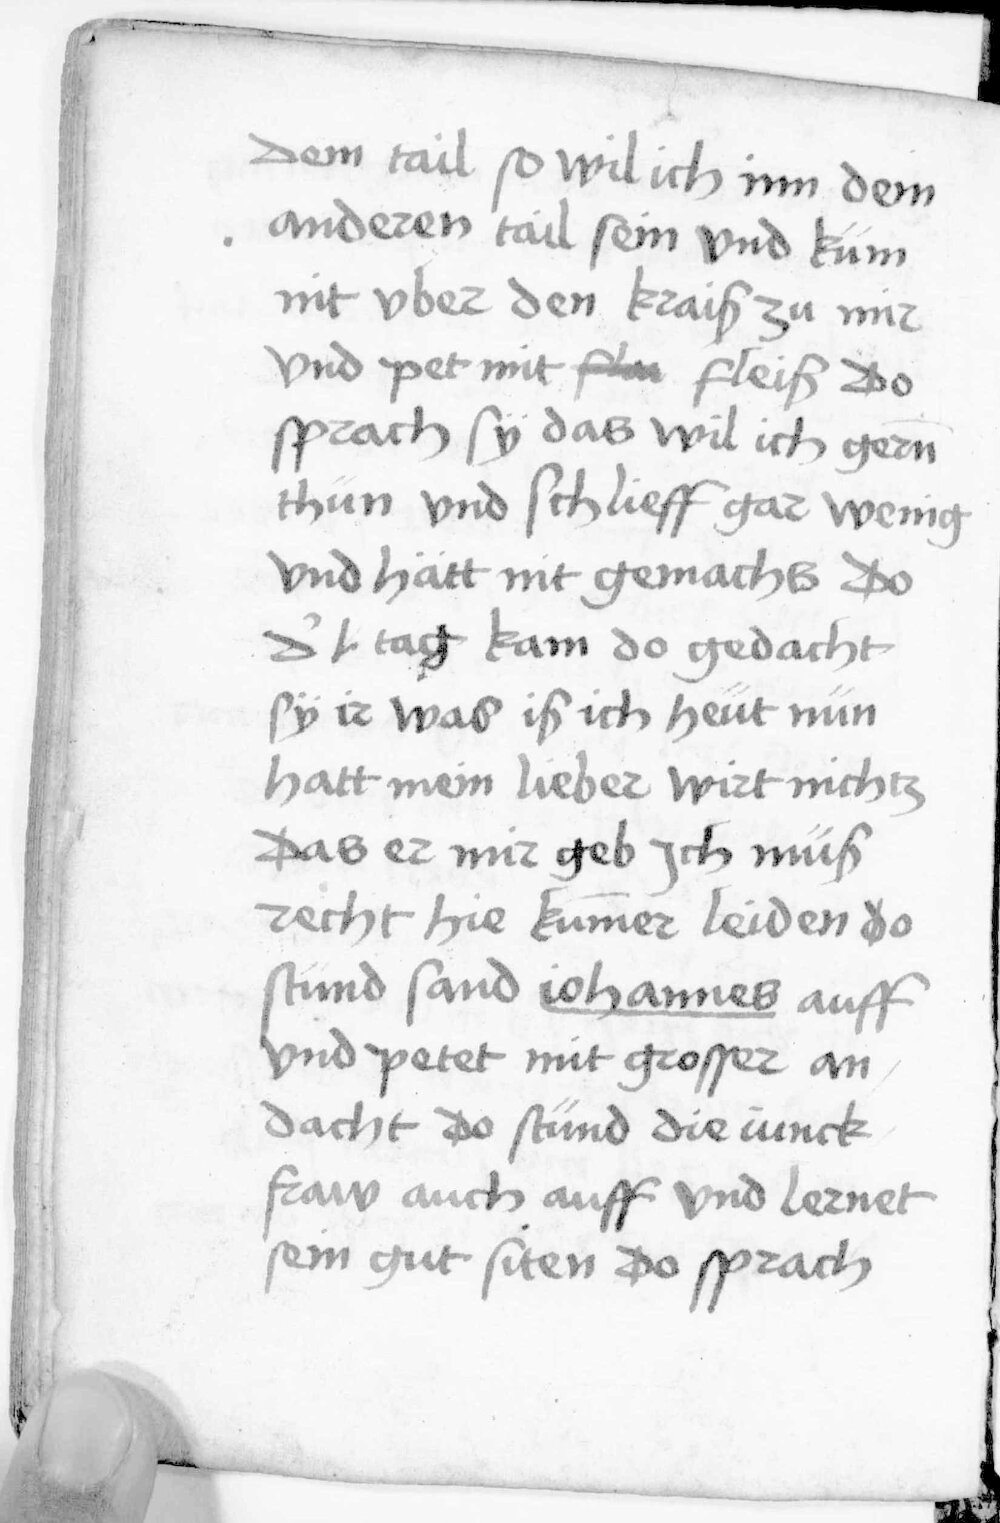 dem tail so wil ich inn dem
anderen tail sein vnd küm
nit vber den kraiß zu mir
vnd pet mit fleiß Do
sprach sÿ das wil ich gern̄
thün vnd schlieff gar wenig
vnd hätt nit gemachs Do
tag kam do gedacht
sÿ ir was iß ich heüt nün
hatt mein lieber wirt nichtz
Das er mir geb Ich müß
recht hie kum̄er leiden do
stünd sand iohannes auff
vnd petet mit grosser an
dacht Do stünd die iunck
fraw auch auff vnd lernet
sein gut siten Do sprach